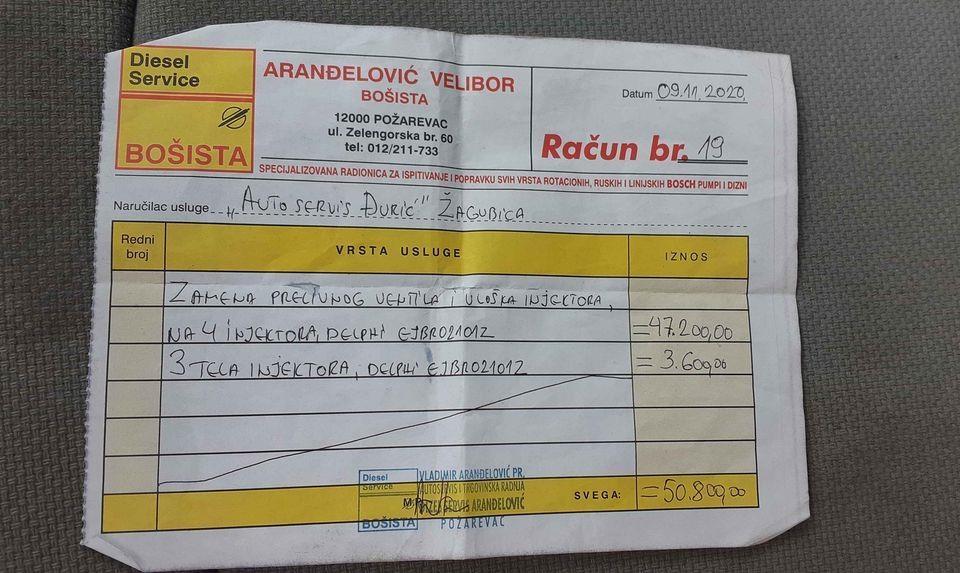 Diesel
Service
BOŠISTA
ARANĐELOVIĆ VELIBOR
BOŠISTA
12000 POŽAREVAC
ul. Zelengorska br. 60
tel: 012/211-733
Datum 09.11.2020.
Račun br. 19
SPECIJALIZOVANA RADIONICA ZA ISPITIVANJE I POPRAVKU SVIH VRSTA ROTACIONIH, RUSKIH I LINIJSKIH BOSCH PUMPI I DIZNI
Naručilac usluge „AUTO SERVIS ĐURIĆ" ŽAGUBICA
Redni broj VRSTA USLUGE IZNOS
ZAMENA PRELIVNOG VENTILA I ULOŠKA INJEKTORA,
NA 4 INJEKTORA, DELPHI EJBR02101Z =47.200,00
3 TELA INJEKTORA, DELPHI EJBR02101Z = 3.600,00
SVEGA: =50.800,00
M.P.
Diesel
Service
BOŠISTA
VLADIMIR ARANĐELOVIĆ PR.
AUTOSERVIS I TRGOVINSKA RADNJA
SERVIS ARANĐELOVIĆ
POŽAREVAC